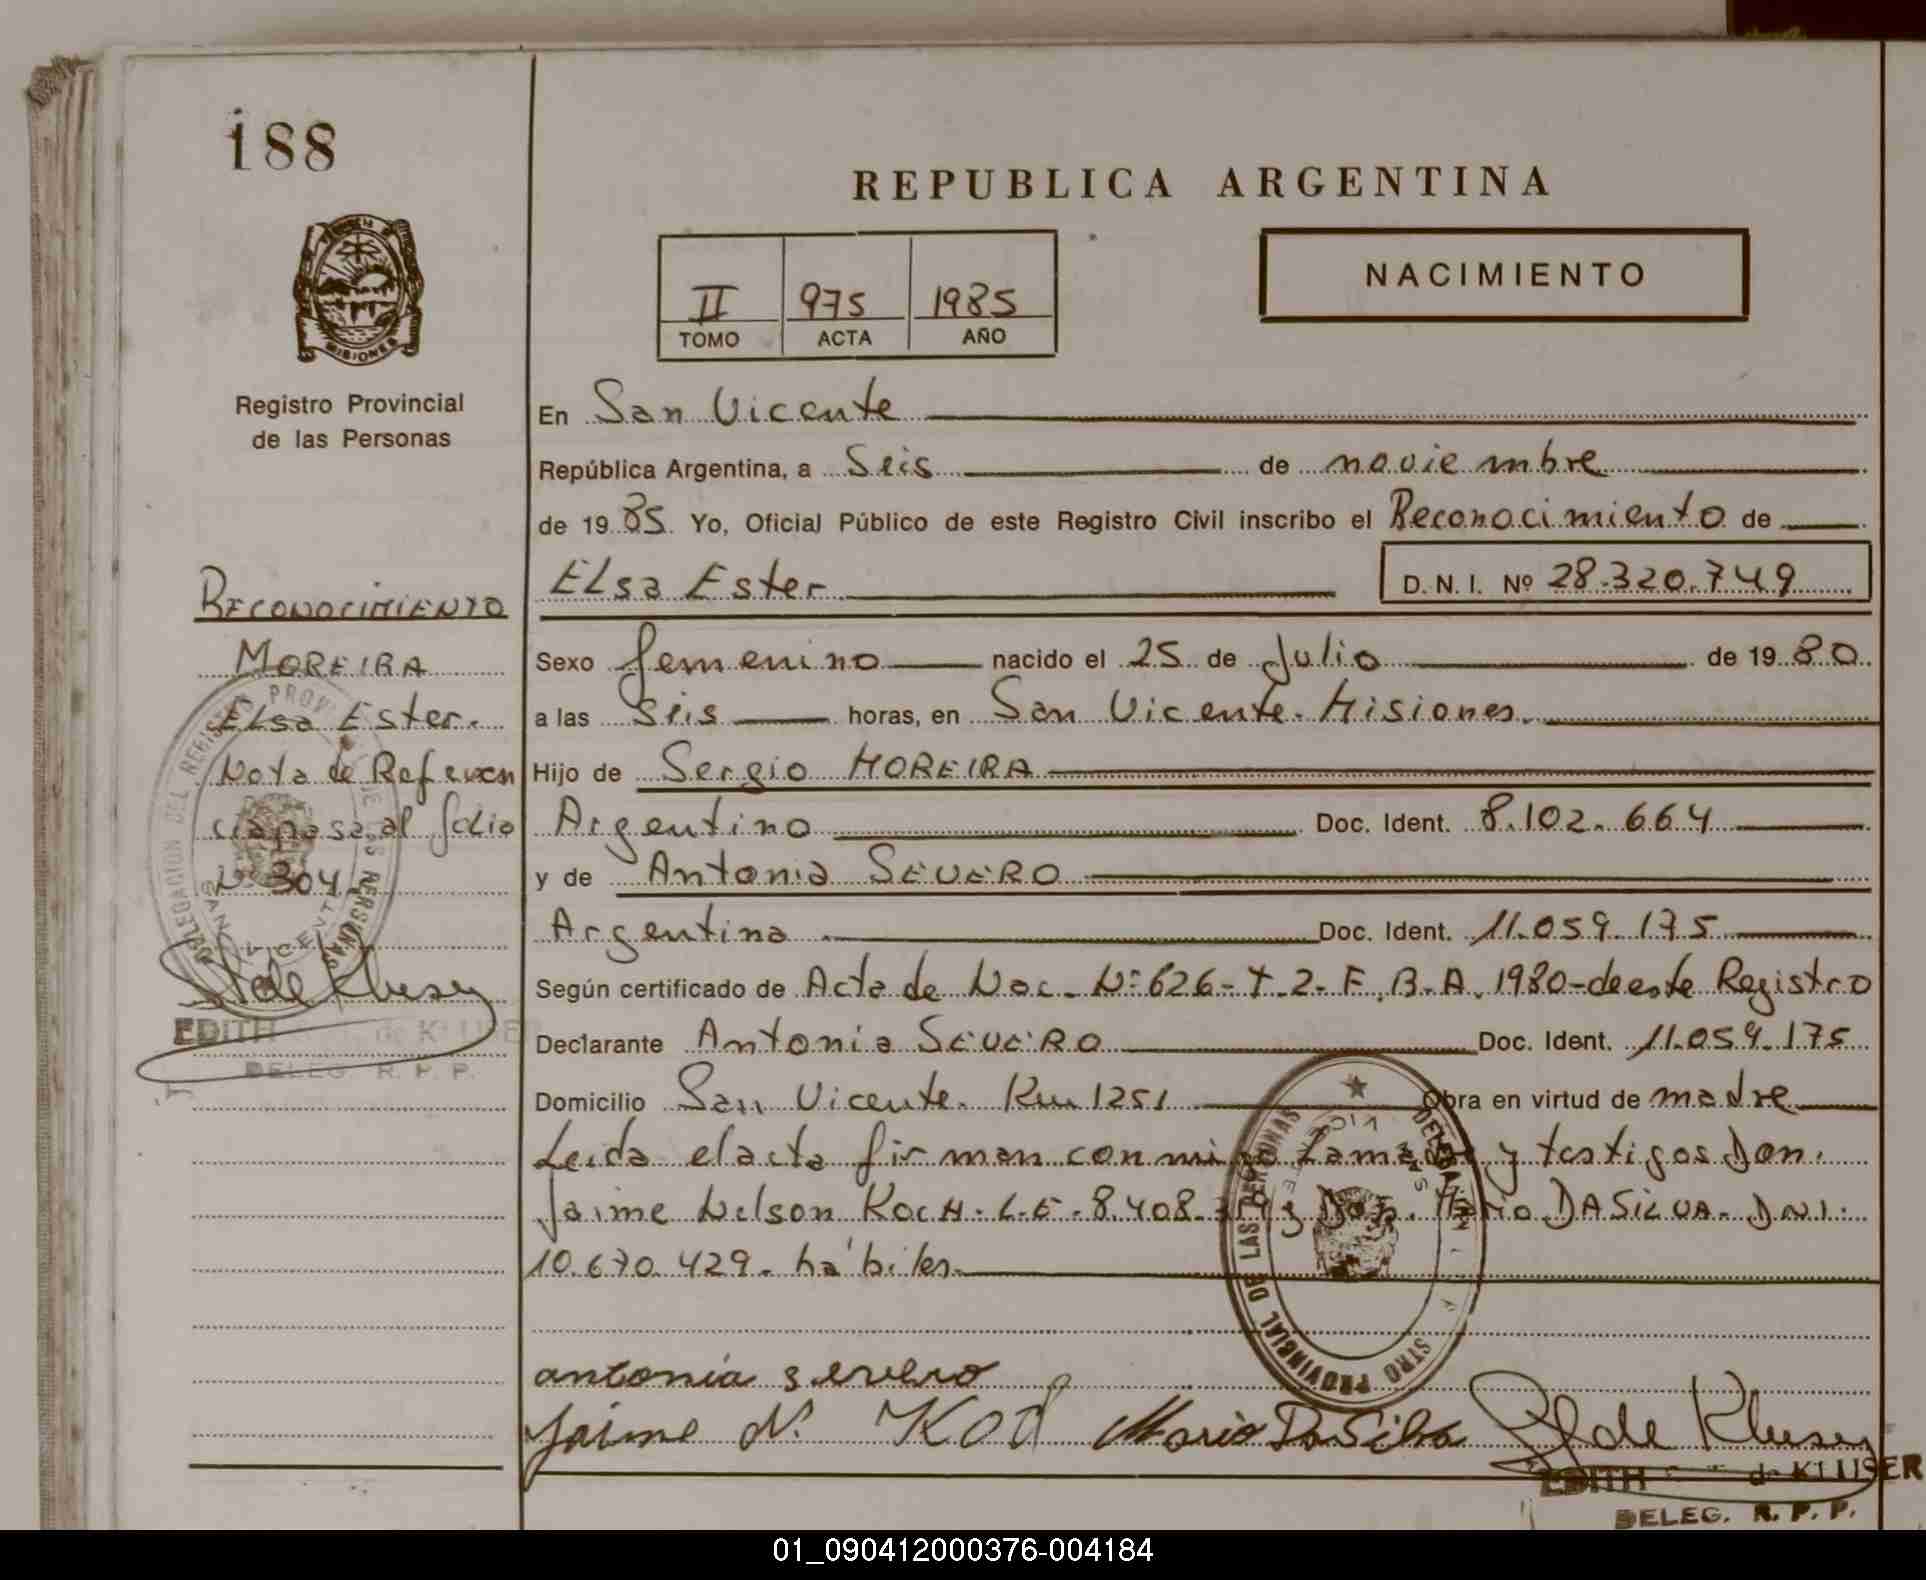 188
REPUBLICA ARGENTINA
NACIMIENTO
II 975 1985
TOMO ACTA AÑO
MISIONES
Registro Provincial
de las Personas
En San Vicente
República Argentina, a Seis de noviembre
de 1985 Yo, Oficial Público de este Registro Civil inscribo el Reconocimiento de
ELsa Ester D.N.I. Nº 28.320.749
RECONOCIMIENTO
MOREIRA
ELsa Ester.
Nota de Referen
cia pasa al folio
Nº 304
EDITH de KLUSER
DELEG. R. P. P.
Sexo femenino nacido el 25 de Julio de 1980
a las seis horas, en San Vicente. Misiones.
Hijo de Sergio MOREIRA
Argentino Doc. Ident. 8.102.664
y de Antonia SEVERO
Argentina Doc. Ident. 11.059.175
Según certificado de Acta de Nac. Nº 626-T.2-F.B.A. 1980-de este Registro
Declarante Antonia SEVERO Doc. Ident. 11.059.175
Domicilio San Vicente. Km 1251 Obra en virtud de madre
Leida el acta firman conmigo La madre y testigos Don.
Jaime Nelson KocH. L.E. 8.408. y Don. Mario DASILVA. DNI.
10.670.429. hábiles.
DELEGACION DEL REGISTRO PROVINCIAL DE LAS PERSONAS
SAN VICENTE
antonia severo
Jaime N. Koch Mario DaSilva
EDITH de KLUSER
DELEG. R. P. P.
01_090412000376-004184